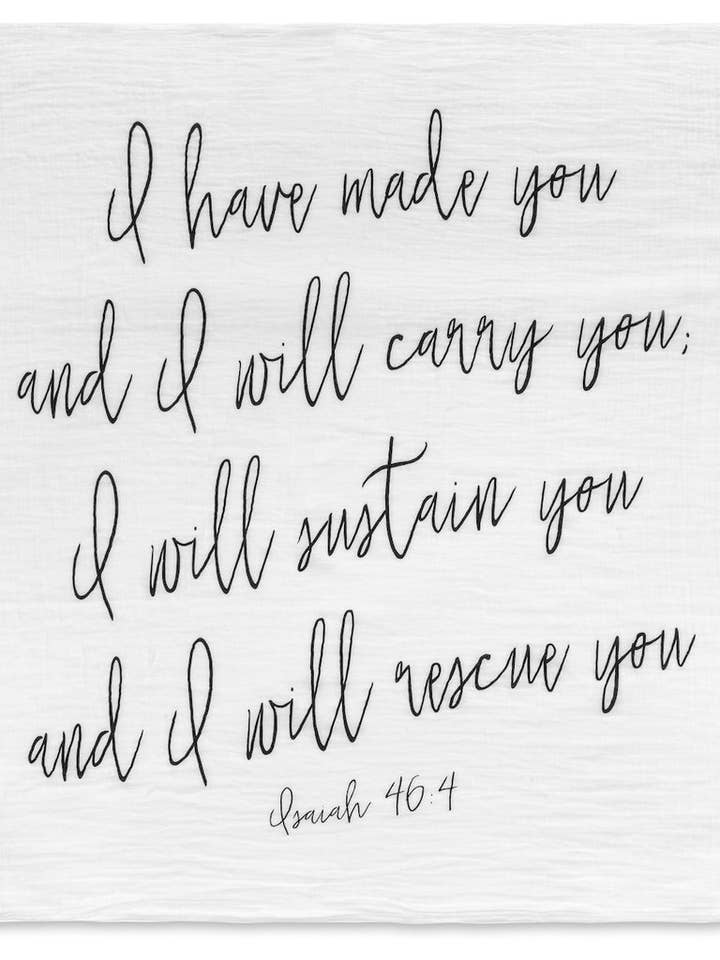 I have made you
and I will carry you;
I will sustain you
and I will rescue you
Isaiah 46:4